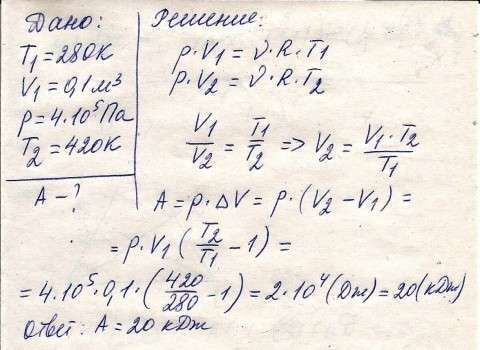 Дано:
T₁=280К
V₁=0,1м³
p=4·10⁵Па
T₂=420К
A-?
Решение:
p·V₁=ν·R·T₁
p·V₂=ν·R·T₂
V₁/V₂ = T₁/T₂ => V₂ = V₁·T₂/T₁
A=p·ΔV=p·(V₂-V₁)=
=p·V₁(T₂/T₁-1)=
=4·10⁵·0,1·(420/280-1)=2·10⁴(Дж)=20(кДж)
Ответ: A=20 кДж